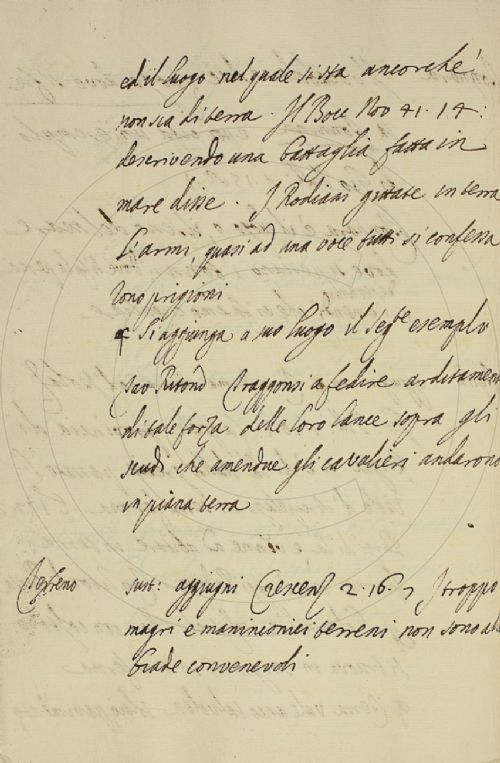 ed il luogo nel quale si sta ancorché
non sia di terra. Il Bocc Nov 41. 14:
descrivendo una battaglia fatta in
mare disse. I Rodiani gittate in terra
l'armi, quasi ad una voce tutti si confessa
rono prigioni
Si aggiunga a suo luogo il seg.te esemplo
Tav Ritond Traggonsi a fedire arditamen
di tale forza delle loro lance sopra gli
scudi che amendue gli cavalieri andarono
in piana terra
Terreno sust: aggiugni Crescenz 2. 16. 7 I troppo
magri e maninconici terreni non sono al
biade convenevoli